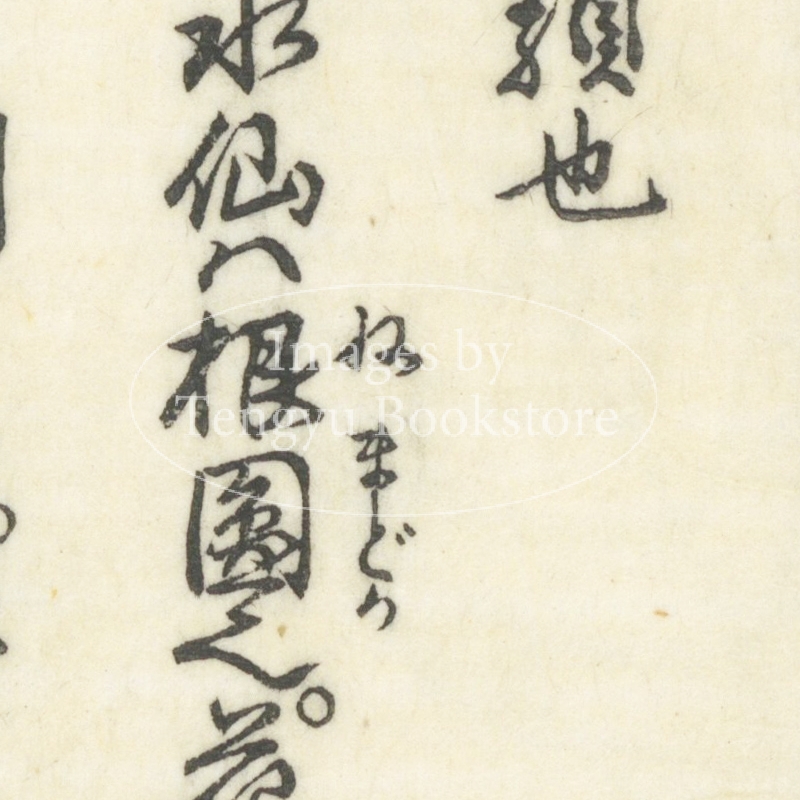 類也
水仙ハ根圓也。
ね まどか
Images by
Tengyu Bookstore